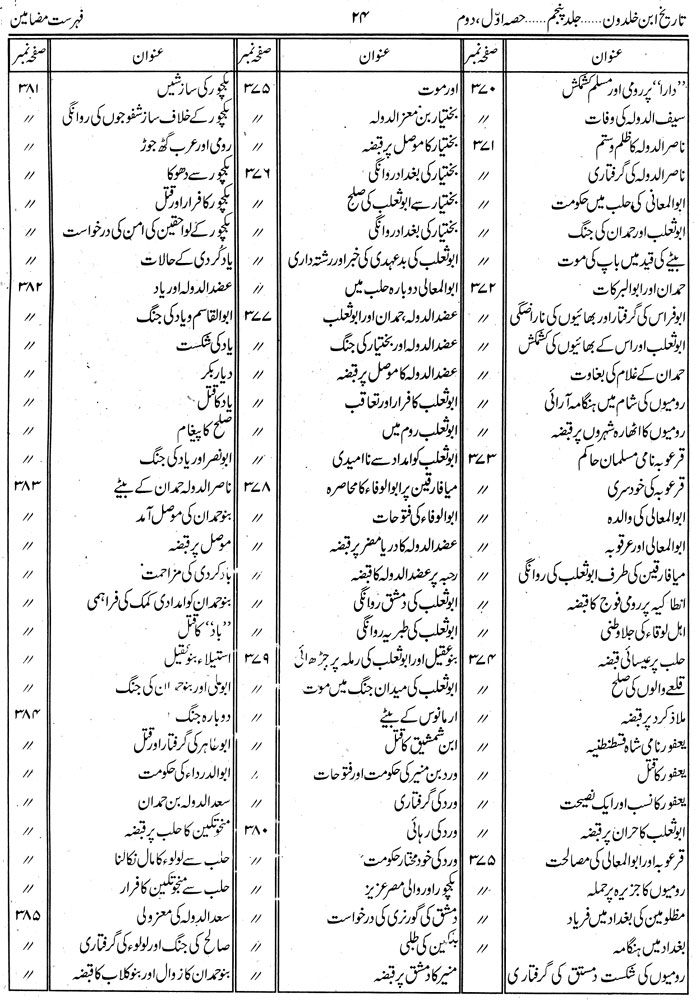 تاریخ ابن خلدون ...... جلد پنجم ...... حصہ اوّل، دوم ۲۴ فہرست مضامین
عنوان صفحہ نمبر عنوان صفحہ نمبر عنوان صفحہ نمبر
”دارا“ پر رومی اور مسلم کشمکش ۳۷۰
سیف الدولہ کی وفات //
ناصر الدولہ کا ظلم و ستم ۳۷۱
ناصر الدولہ کی گرفتاری //
ابوالمعانی کی حلب میں حکومت //
ابو ثعلب اور حمدان کی جنگ //
بیٹے کی قید میں باپ کی موت //
حمدان اور ابوالبرکات ۳۷۲
ابو فراس کی گرفتار اور بھائیوں کی ناراضگی //
ابو ثعلب اور اس کے بھائیوں کی کشمکش //
حمدان کے غلام کی بغاوت //
رومیوں کی شام میں ہنگامہ آرائی //
رومیوں کا اٹھارہ شہروں پر قبضہ //
قرعوبہ نامی مسلمان حاکم ۳۷۳
قرعوبہ کی خودسری //
ابوالمعالی کی والدہ //
ابوالمعالی اور عرقوبہ //
میافارقین کی طرف ابو ثعلب کی روانگی //
انطاکیہ پر رومی فوج کا قبضہ //
اہل لوقاء کی جلاوطنی //
حلب پر عیسائی قبضہ ۳۷۴
قلعے والوں کی صلح //
ملاذکرد پر قبضہ //
یعفور نامی شاہ قسطنطنیہ //
یعفور کا قتل //
یعفور کا نسب اور ایک نصیحت //
ابو ثعلب کا حران پر قبضہ //
قرعوبہ اور ابوالمعالی کی مصالحت ۳۷۵
رومیوں کا جزیرہ پر حملہ //
مظلومین کی بغداد میں فریاد //
بغداد میں ہنگامہ //
رومیوں کی شکست دمستق کی گرفتاری
اور موت ۳۷۵
بختیار بن معزالدولہ //
بختیار کا موصل پر قبضہ //
بختیار کی بغداد روانگی ۳۷۶
بختیار سے ابو ثعلب کی صلح //
بختیار کی بغداد روانگی //
ابو ثعلب کی بدعہدی کی خبر اور رشتہ داری //
ابوالمعالی دوبارہ حلب میں //
عضدالدولہ، حمدان اور ابو ثعلب ۳۷۷
عضدالدولہ اور بختیار کی جنگ //
عضدالدولہ کا موصل پر قبضہ //
ابو ثعلب کا فرار اور تعاقب //
ابو ثعلب روم میں //
ابو ثعلب کو امداد سے نا امیدی //
میافارقین پر ابوالوفاء کا محاصرہ ۳۷۸
ابوالوفاء کی فتوحات //
عضدالدولہ کا دریا مضر پر قبضہ //
رحبہ پر عضدالدولہ کا قبضہ //
ابو ثعلب کی دمشق روانگی //
ابو ثعلب کی طبریہ روانگی //
بنو عقیل اور ابو ثعلب کی رملہ پر چڑھائی ۳۷۹
ابو ثعلب کی میدان جنگ میں موت //
ارمانوس کے بیٹے //
ابن شمشیق کا قتل //
ورد بن منیر کی حکومت اور فتوحات //
ورد کی گرفتاری //
ورد کی رہائی ۳۸۰
ورد کی خود مختار حکومت //
بکجور اور والی مصر عزیز //
دمشق کی گورنری کی درخواست //
بلتکین کی طلبی //
منیر کا دمشق پر قبضہ //
بکجور کی سازشیں ۳۸۱
بکجور کے خلاف سازش فوجوں کی روانگی //
رومی اور عرب گٹھ جوڑ //
بکجور سے دھوکا //
بکجور کا فرار اور قتل //
بکجور کے لواحقین کی امن کی درخواست //
یاد کردی کے حالات //
عضدالدولہ اور یاد ۳۸۲
ابوالقاسم و یاد کی جنگ //
یاد کی شکست //
دیار بکر //
یاد کا قتل //
صلح کا پیغام //
ابو نصر اور یاد کی جنگ //
ناصر الدولہ حمدان کے بیٹے ۳۸۳
بنو حمدان کی موصل آمد //
موصل پر قبضہ //
یاد کردی کی مزاحمت //
بنو حمدان کو امدادی کمک کی فراہمی //
”باد“ کا قتل //
استیلاء بنو عقیل //
ابو علی اور بنو حمدان کی جنگ //
دوبارہ جنگ ۳۸۴
ابو طاہر کی گرفتار اور قتل //
ابوالدرداء کی حکومت //
سعد الدولہ بن حمدان //
منجوتکین کا حلب پر قبضہ //
حلب سے لولوء کا مال نکالنا //
حلب سے منجوتکین کا فرار //
سعد الدولہ کی معزولی ۳۸۵
صالح کی جنگ اور لولوء کی گرفتاری //
بنو حمدان کا زوال اور بنو کلاب کا قبضہ //